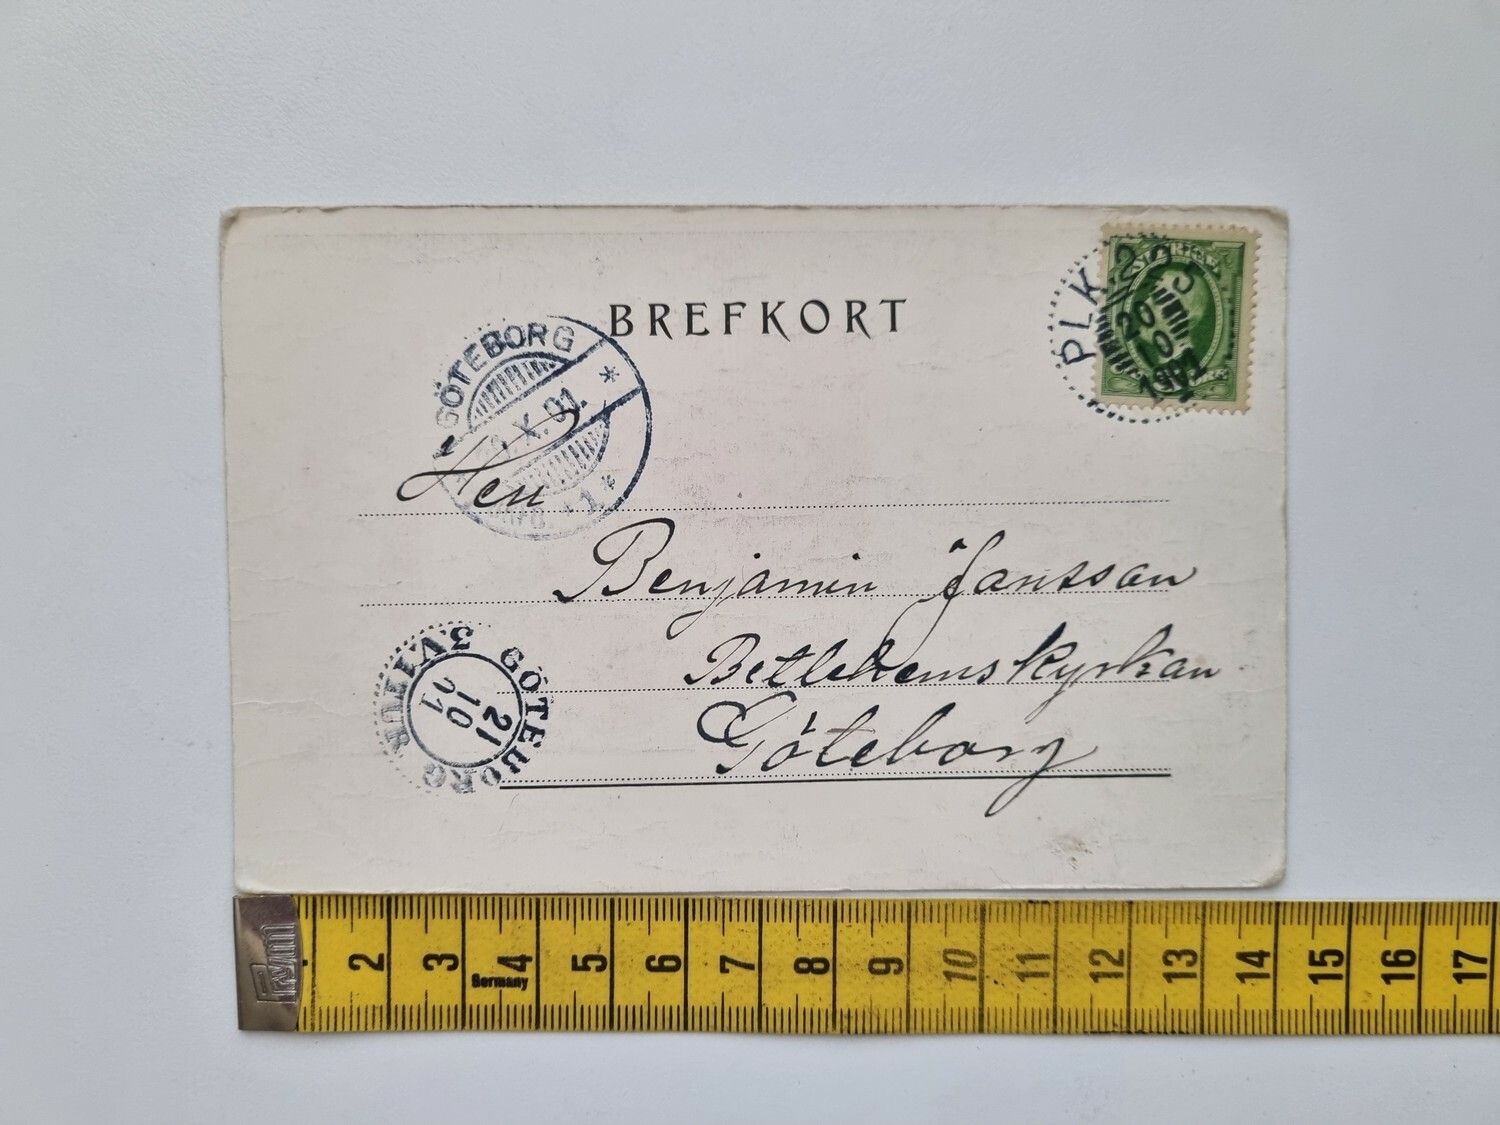 BREFKORT
SVERIGE
PLK 295
20
10
1901
GÖTEBORG
X.01.
Herr
Benjamin Jansson
Betlehemskyrkan
Göteborg
GÖTEBORG
21
10
01
Prym
2 3 4 5 6 7 8 9 10 11 12 13 14 15 16 17
Germany